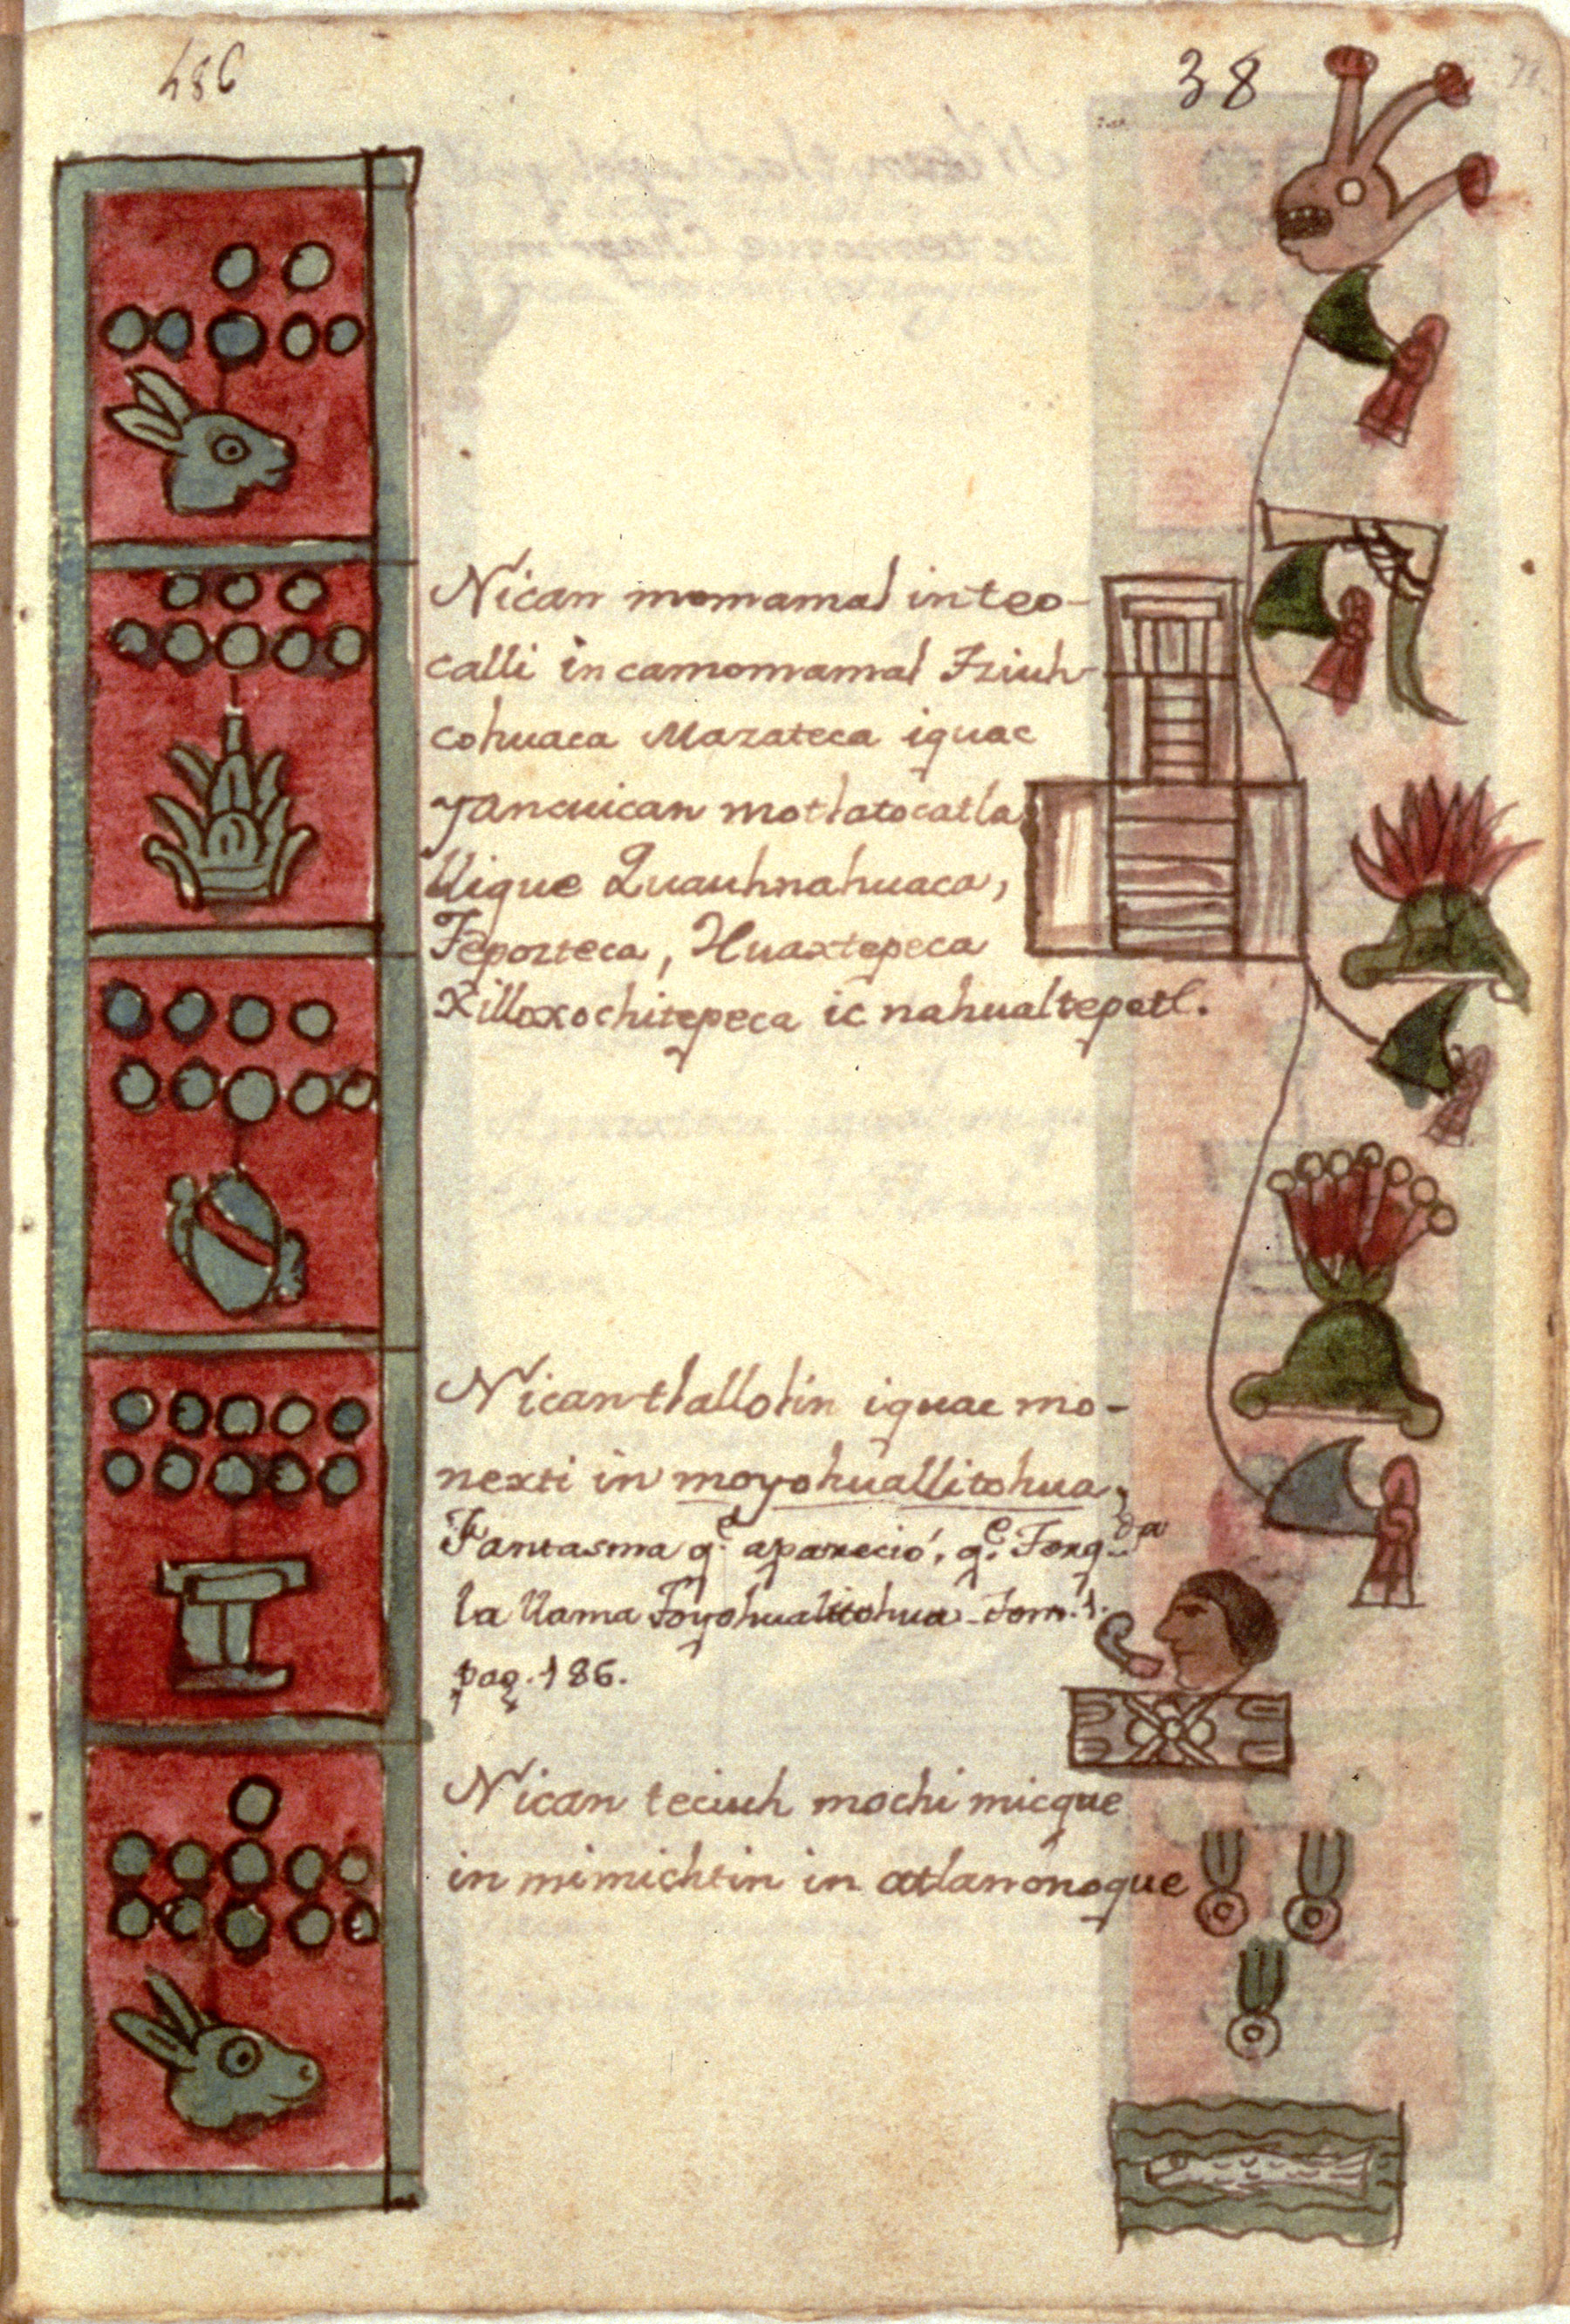 486
38
Nican momamal in teo-
calli in camomamal Tziuh-
cohuaca Mazateca iquac
yancuican motlatocatla
llique Quauhnahuaca,
Tepozteca, Huaxtepeca
Xilloxochitepeca ic nahualtepetl.
Nican tlallolin iquac mo-
nexti in moyohuallitohua,
Fantasma q.e apareció, q.e Torq.da
la llama Toyohualitohua Tom. 1.
pag. 186.
Nican teciuh mochi micque
in mimichtin in atlan onoque